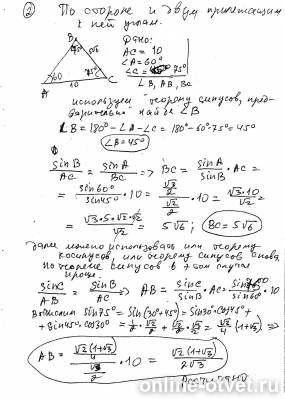 ② По стороне и двум прилежащим
к ней углам.
Дано:
AC = 10
∠A = 60°
∠C = 75°
∠B, AB, BC
B
75°
5√6
60
75°
A
10
C
используем теорему синусов, пред-
варительно найдя ∠B
∠B = 180° - ∠A - ∠C = 180° - 60° - 75° = 45°
∠B = 45°
sinB/AC = sinA/BC => BC = sinA/sinB · AC =
= sin60°/sin45° · 10 = (√3/2)/(√2/2) · 10 = √3·10/√2 =
= √3·5·√2·√2/√2 = 5√6; BC = 5√6
далее можно использовать или теорему
косинусов, или теорему синусов снова
По теореме синусов в этом случае
проще:
sinC/AB = sinB/AC => AB = sinC/sinB · AC = · 10
Вычислим sin75° = sin(30°+45°) = sin30°·cos45° +
+ sin45°·cos30° = 1/2·√2/2 + √2/2·√3/2 = √2/4(1+√3) =>
AB = (√2(1+√3)/4)/(√3/2) · 10 = √2(1+√3)/2√3
online-otvet.ru